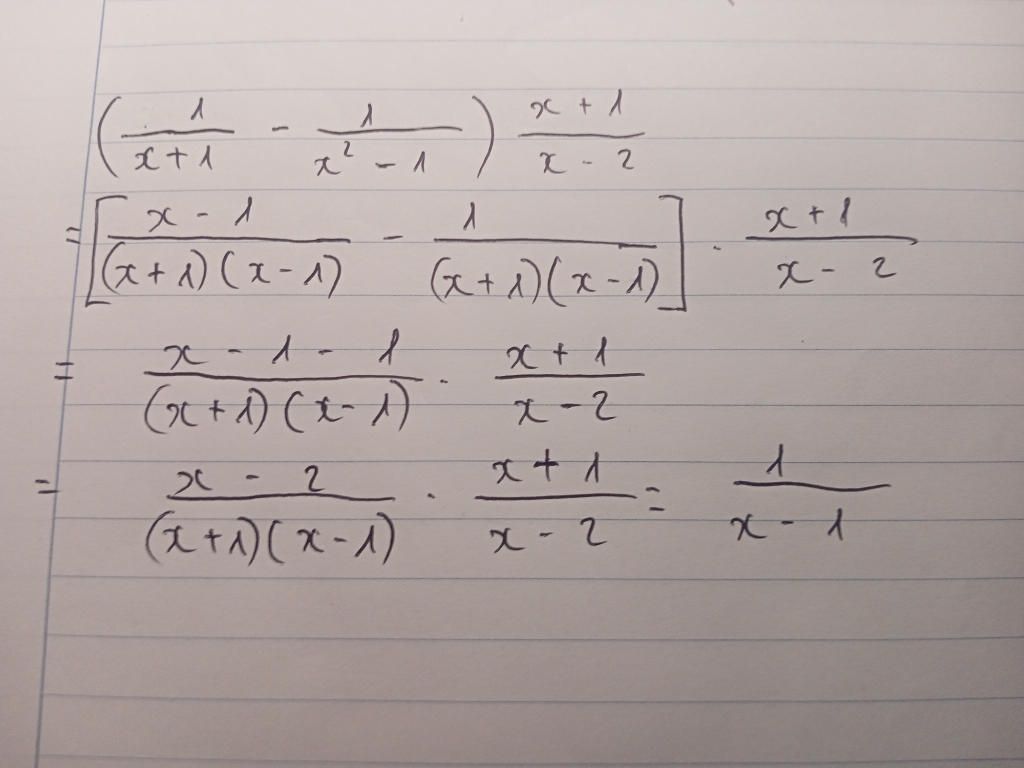 (1/(x+1) - 1/(x² - 1)) (x+1)/(x-2)
= [(x-1)/((x+1)(x-1)) - 1/((x+1)(x-1))] · (x+1)/(x-2)
= (x-1-1)/((x+1)(x-1)) · (x+1)/(x-2)
= (x-2)/((x+1)(x-1)) · (x+1)/(x-2) = 1/(x-1)